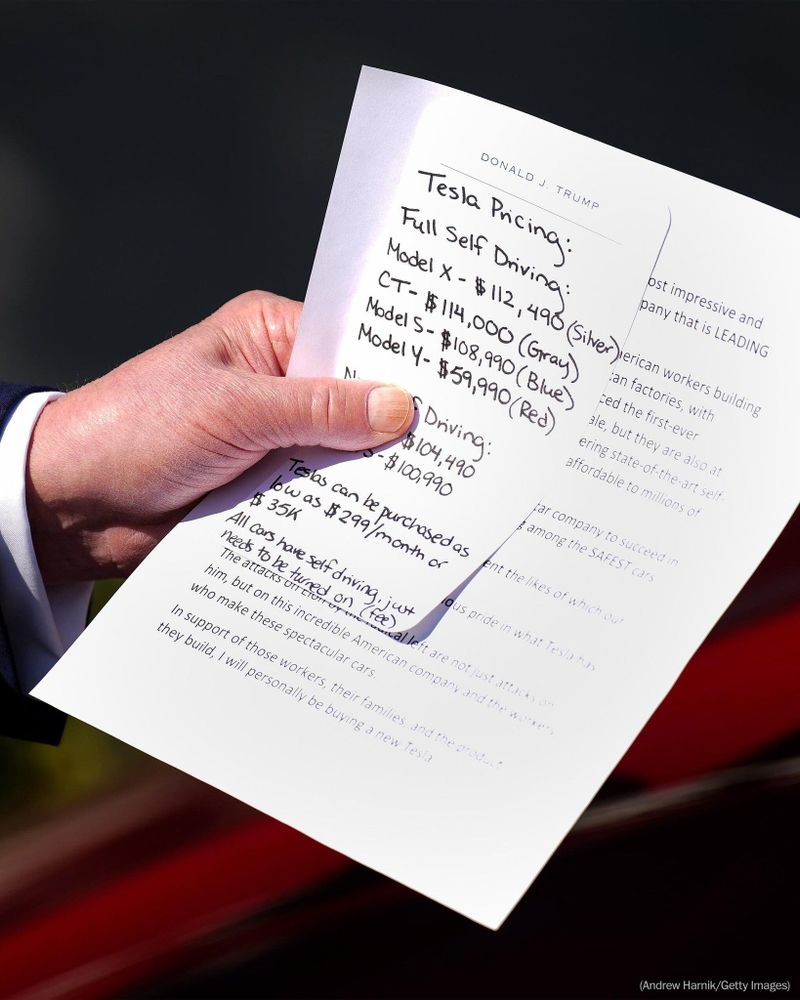 DONALD J. TRUMP
Tesla Pricing:
Full Self Driving:
Model X - $112,490 (Silver)
CT- $114,000 (Gray)
Model S- $108,990 (Blue)
Model Y- $59,990 (Red)
Driving:
$104,490
S - $100,990
Teslas can be purchased as
low as $299/month or
$35K
All cars have self driving, just
needs to be turned on (fee)
ost impressive and
pany that is LEADING
erican workers building
an factories, with
ced the first-ever
ale, but they are also at
ering state-of-the-art self-
affordable to millions of
car company to succeed in
among the SAFEST cars
ent the likes of which our
ous pride in what Tesla has
The attacks on Elon by the radical left are not just attacks on
him, but on this incredible American company and the workers
who make these spectacular cars.
In support of those workers, their families, and the product
they build, I will personally be buying a new Tesla
(Andrew Harnik/Getty Images)